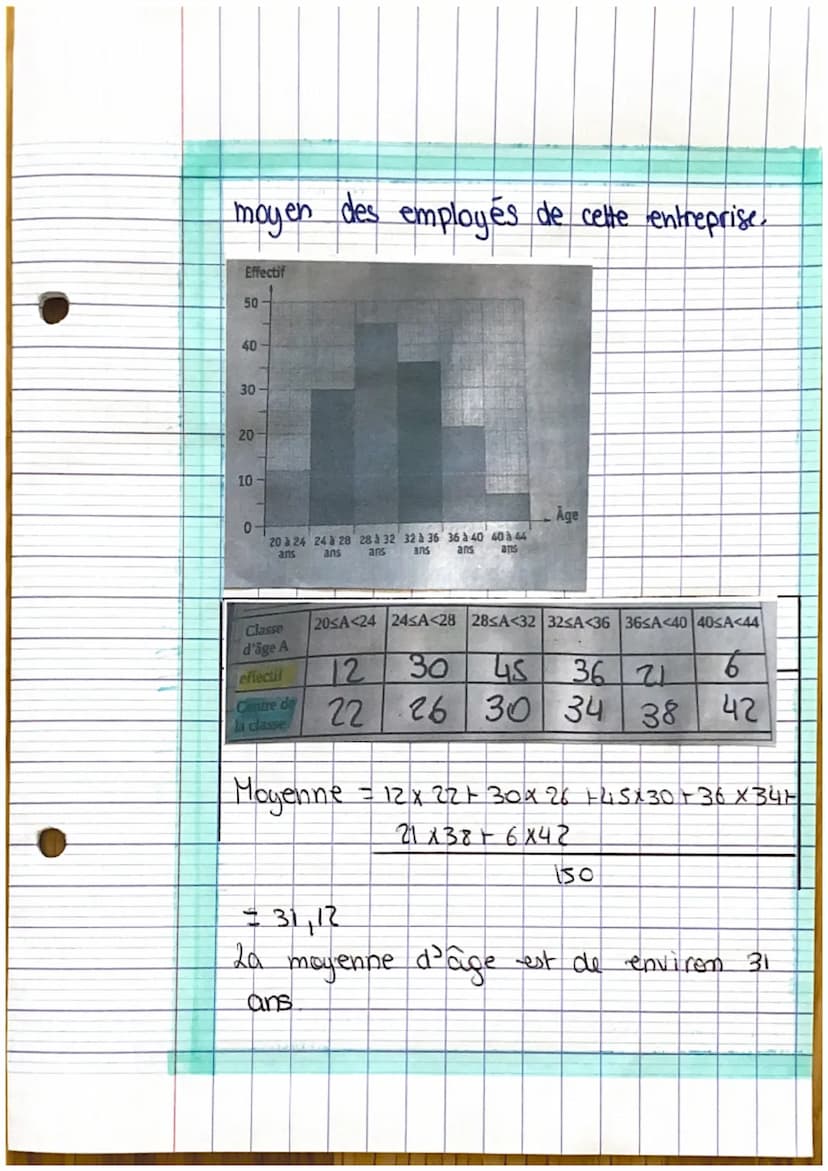 moyen des employés de cette entreprise.
Effectif
50
40
30
20
10
0
Âge
20 à 24 24 à 28 28 à 32 32 à 36 36 à 40 40 à 44
ans ans ans ans ans ans
Classe d'âge A 20≤A<24 24≤A<28 28≤A<32 32≤A<36 36≤A<40 40≤A<44
effectif 12 30 45 36 21 6
Centre de la classe 22 26 30 34 38 42
Moyenne = 12 x 22 + 30 x 26 + 45 x 30 + 36 x 34 +
21 x 38 + 6 x 42
150
= 31,12
La moyenne d'âge est de environ 31
ans.